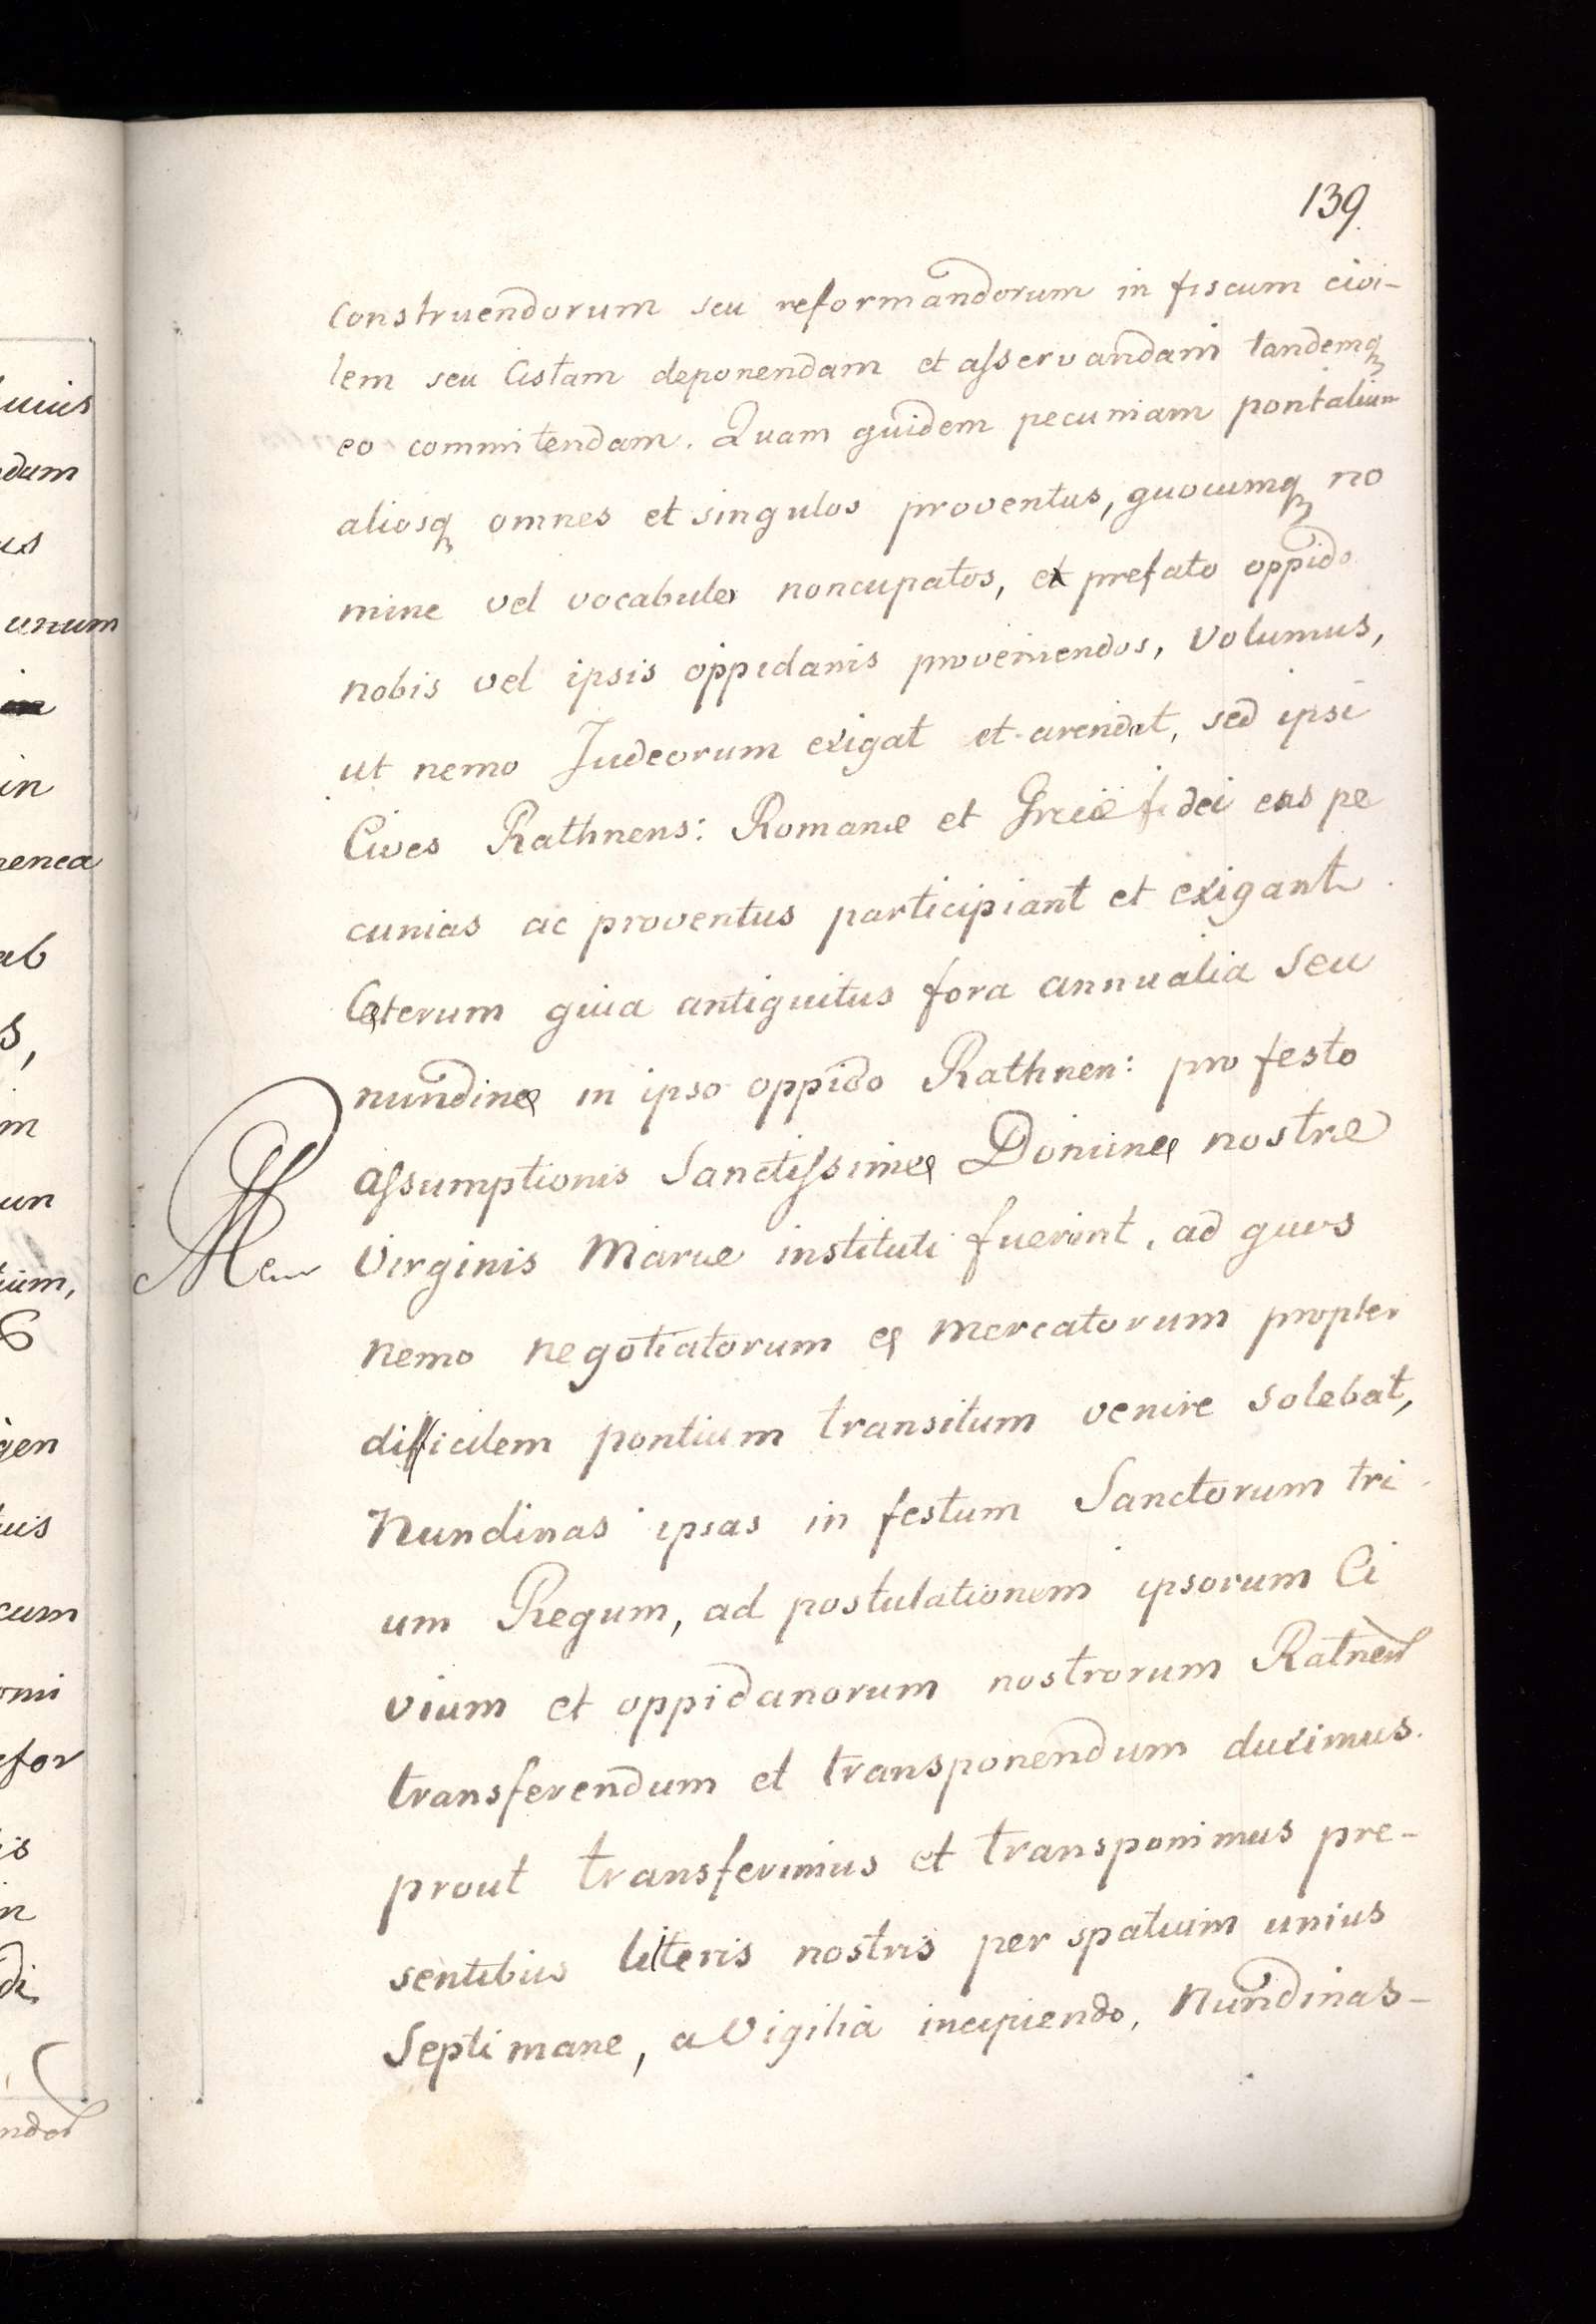 139
construendorum seu reformandorum in fiscum civi-
lem seu Cistam deponendam et asservandam tandemq
eo commitendam. Quam quidem pecuniam pontalium
aliosq omnes et singulos proventus, quocumq no
mine vel vocabulo noncupatos, ex prefato oppido
nobis vel ipsis oppidanis proveniendos, volumus,
ut nemo Judeorum exigat et arendet, sed ipsi
Cives Rathnens: Romanæ et Græcæ fidei eas pe
cunias ac proventus participiant et exigant
Cęterum quia antiquitus fora annualia seu
nundinę in ipso oppido Rathnen: pro festo
assumptionis Sanctissimę Dominę nostræ
Virginis Mariæ instituti fuerint, ad quos
nemo negotiatorum et mercatorum propter
difficilem pontium transitum venire solebat,
Nundinas ipsas in festum Sanctorum tri
um Regum, ad postulationem ipsorum Ci
vium et oppidanorum nostrorum Ratnen
transferendum et transponendum duximus.
prout transferimus et transponimus pre-
sentibus literis nostris per spatium unius
Septimane, a Vigilia incipiendo, Nundinas-